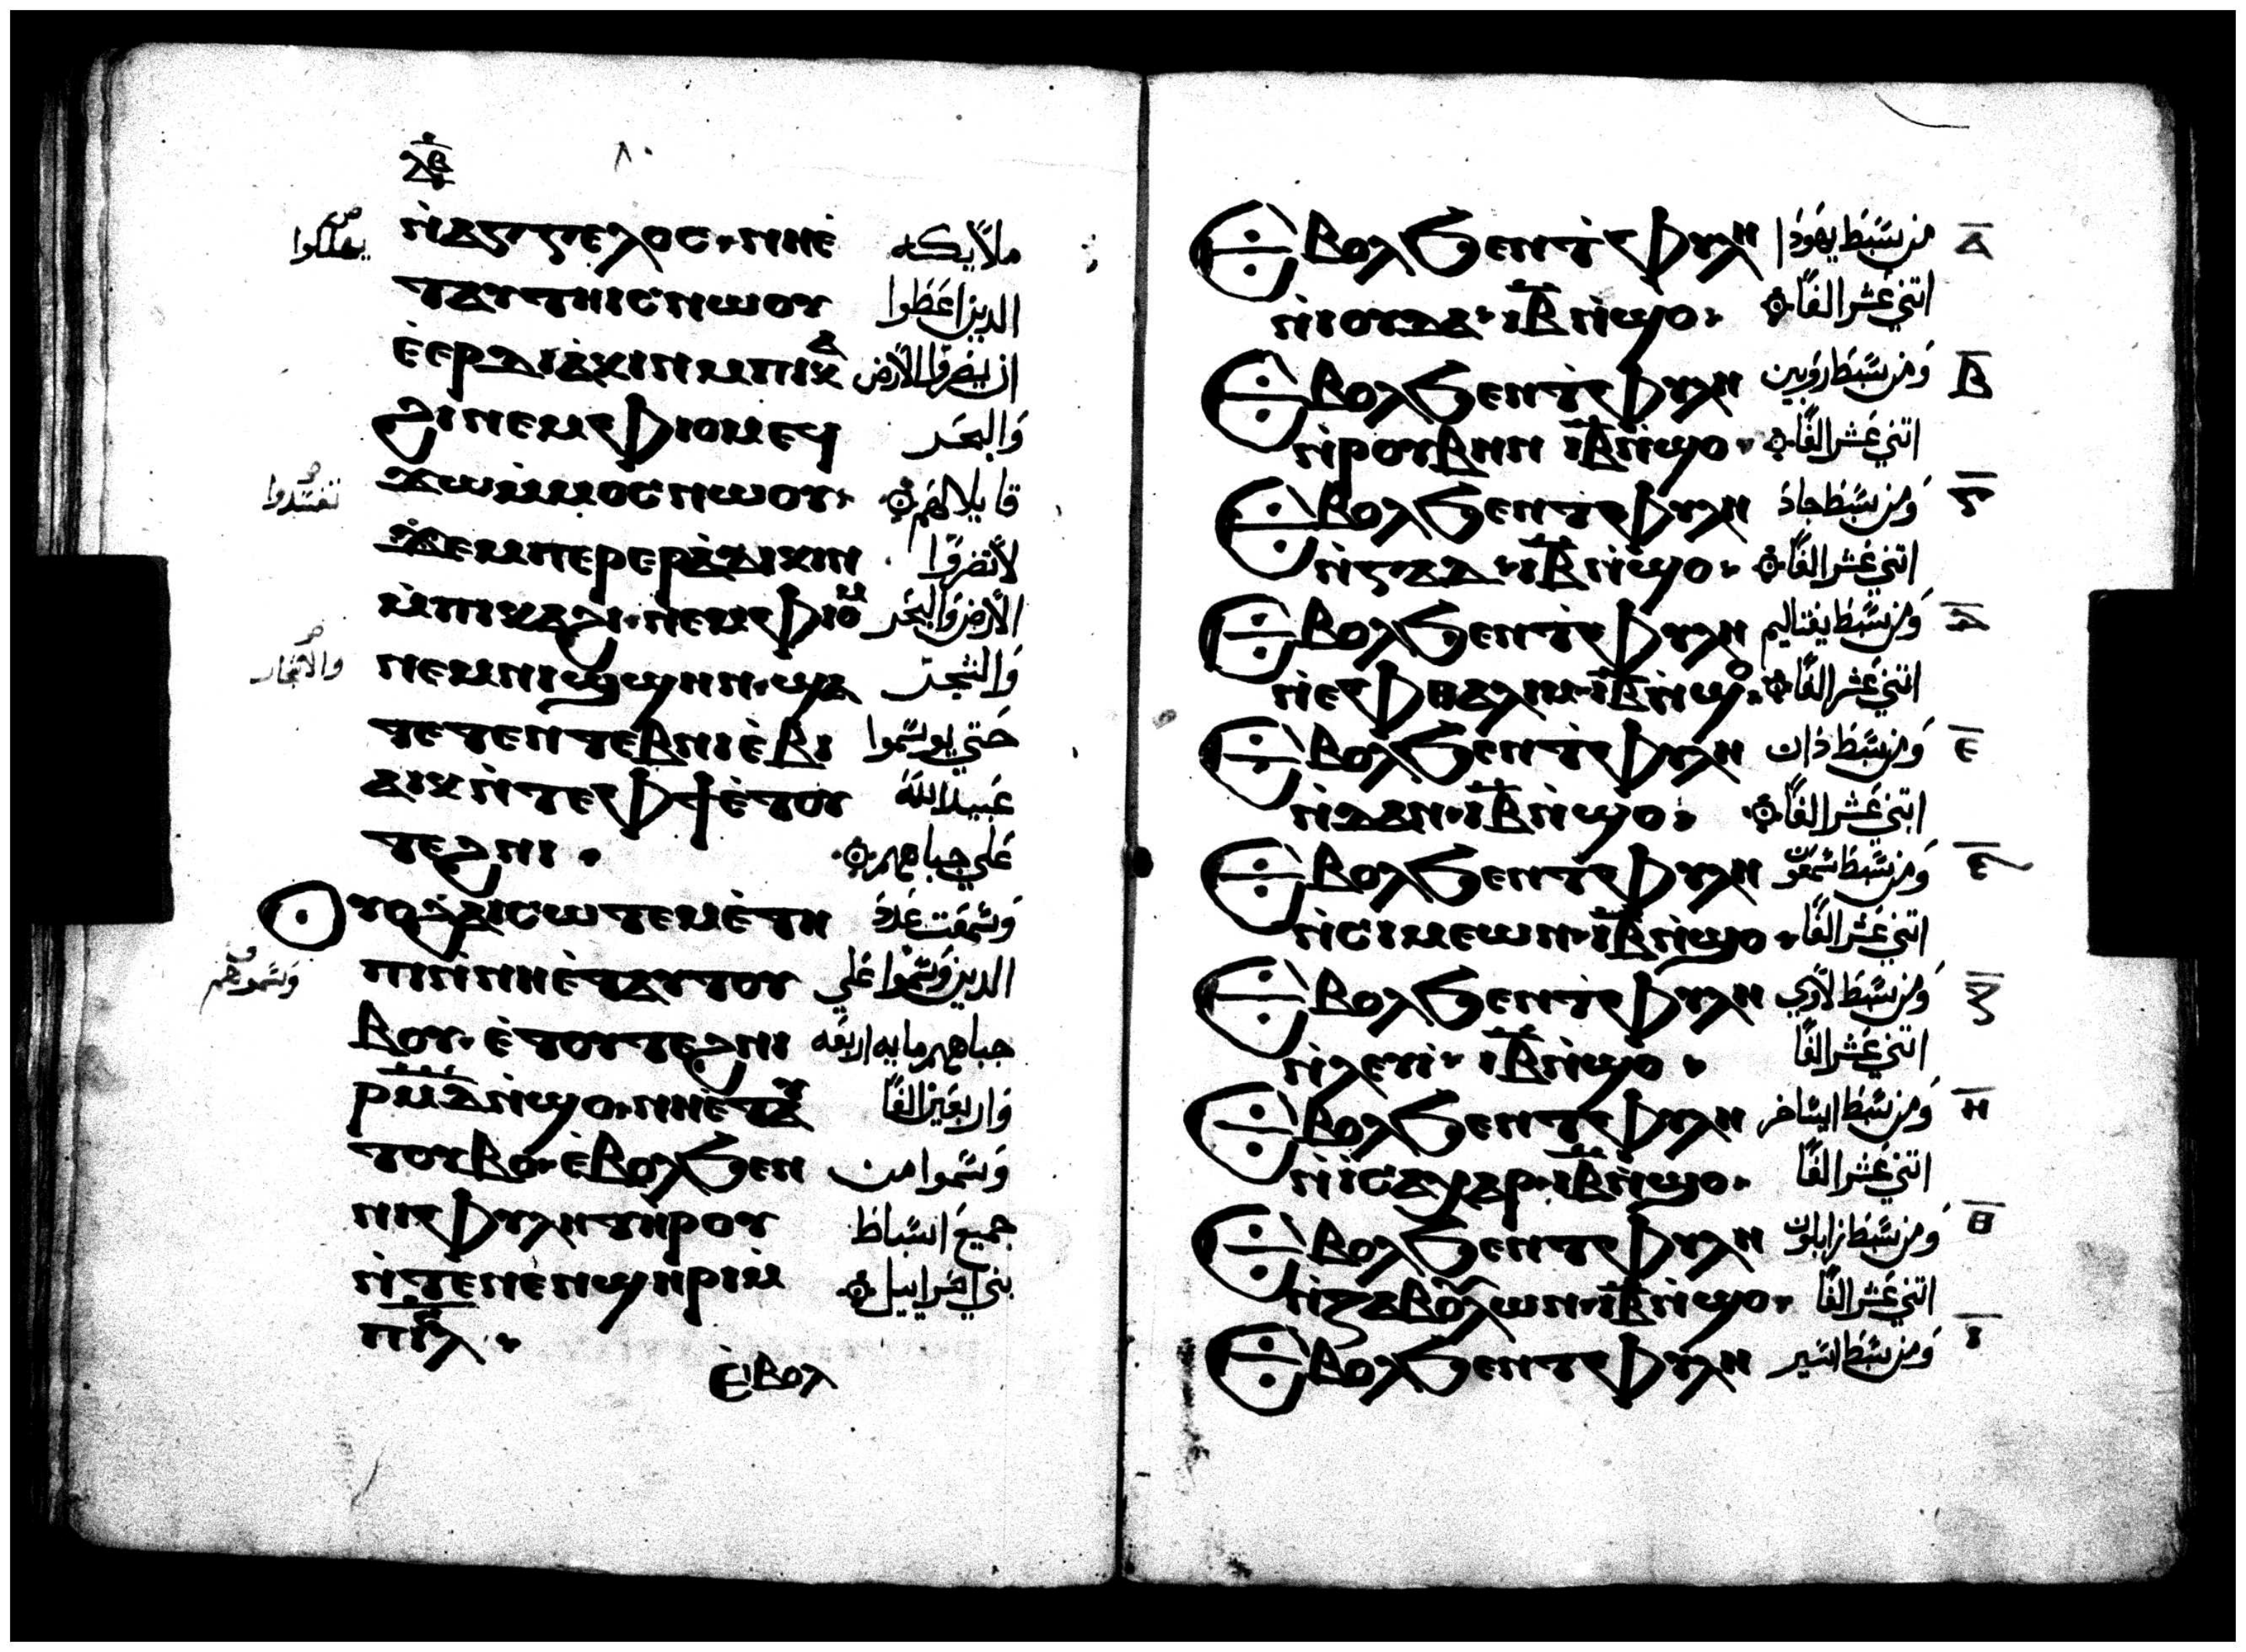 ⲗ̅ⲃ̅
٨٠
ⲛ̀ⲁⲅⲅⲉⲗⲟⲥ·ⲛⲏⲉ̀ ملايكه
ⲧⲁⲩⲧⲏⲓⲥⲛⲱⲟⲩ الدين اعَطوا
ⲉ̀ⲉⲣⲁⲇⲓⲕⲓⲛⲙⲡⲓⲕⲁ ان يضروا الأرض
ϩⲓⲛⲉⲙⲫⲓⲟⲙⲉϥ وَالبحَر
ϫⲱⲙ̀ⲙⲟⲥⲛⲱⲟⲩ· قايلا لهَم
ϫⲉⲙⲡⲉⲣⲉⲣⲁ̀ⲇⲓⲕⲓⲛ لاتضروا
ⲙ̀ⲡⲓⲕⲁϩⲓ·ⲛⲉⲙⲫⲓⲟⲙ الأرض وَالبحَر
ⲛⲉⲙⲛⲓϣϣⲏⲛ·ϣⲁ وَالشجر
ⲧⲉⲧⲉⲛⲧⲉⲃⲛⲓⲉ̀ⲃⲓ حَتي يوسَموا
ⲁⲓⲕⲛ̀ⲧⲉⲫϯⲉ̀ⲧⲟⲩ عَبيد الله
ⲧⲉϩⲛⲓ· عَلي جباههم
ⲟⲩⲟϩⲁⲓⲥⲱⲧⲉⲙⲉ̀ⲧⲏ وَسَمعَت عَدَد
ⲡⲓⲛ̀ⲛⲏⲉ̀ⲧⲁⲩⲧⲟⲩ الدين وَسَموا عَلي
ⲃⲟⲩ·ⲉ̀ⲧⲟⲩⲧⲉϩⲛⲓ جباههم مايه اربعَه
ⲣ̅ⲙ̅ⲇ̅ⲛ̀ϣⲟ·ⲛⲏⲉⲧⲁⲩ وَاربعَين الفًا
ⲧⲟⲩⲃⲟ·ⲉ̀ⲃⲟⲗϧⲉⲛ وَسَموا من
ⲛⲓⲫⲩⲗⲏⲧⲏⲣⲟⲩ جميعَ اسَباط
ⲛ̀ⲧⲉⲛⲉⲛϣⲏⲣⲓⲙ̀ بني اسَراييل
ⲡⲓⲥ̅ⲗ̅·
ⲉ̀ⲃⲟⲗ
ⲉⲃⲟⲗϧⲉⲛⲧ̀ⲫⲩⲗⲏ من سَبَط يهَودَا ⲁ̅
ⲛ̀ⲓⲟⲩⲇⲁ·ⲓ̅ⲃ̅ⲛ̀ϣⲟ· اتني عَشر الفًا
ⲉⲃⲟⲗϧⲉⲛⲧ̀ⲫⲩⲗⲏ وَمن سَبَط روَبين ⲃ̅
ⲛ̀ⲣⲟⲩⲃⲏⲛ ⲓ̅ⲃ̅ⲛ̀ϣⲟ· اتني عَشر الفًا
ⲉⲃⲟⲗϧⲉⲛⲧ̀ⲫⲩⲗⲏ وَمن سَبَط جاد ⲅ̅
ⲛ̀ⲅⲁⲇ·ⲓ̅ⲃ̅ⲛ̀ϣⲟ· اتني عَشر الفًا
ⲉⲃⲟⲗϧⲉⲛⲧ̀ⲫⲩⲗⲏ وَمن سَبَط يفتاليم ⲇ̅
ⲛ̀ⲉⲫⲑⲁⲗⲓⲙ·ⲓ̅ⲃ̅ⲛ̀ϣⲟ· اتني عَشر الفًا
ⲉⲃⲟⲗϧⲉⲛⲧ̀ⲫⲩⲗⲏ وَمن سَبَط دان ⲉ̅
ⲛ̀ⲇⲁⲛ·ⲓ̅ⲃ̅ⲛ̀ϣⲟ· اتني عَشر الفًا
ⲉⲃⲟⲗϧⲉⲛⲧ̀ⲫⲩⲗⲏ وَمن سَبَط سَمعَون ⲋ̅
ⲛ̀ⲥⲓⲙⲉⲱⲛ·ⲓ̅ⲃ̅ⲛ̀ϣⲟ· اتني عَشر الفًا
ⲉⲃⲟⲗϧⲉⲛⲧ̀ⲫⲩⲗⲏ وَمن سَبَط لاوي ⲍ̅
ⲛ̀ⲗⲉⲩⲓ· ⲓ̅ⲃ̅ⲛ̀ϣⲟ· اتني عَشر الفًا
ⲉⲃⲟⲗϧⲉⲛⲧⲫⲩⲗⲏ وَمن سَبَط ايسَاخر ⲏ̅
ⲛ̀ⲓⲥⲁⲭⲁⲣ·ⲓ̅ⲃ̅ⲛ̀ϣⲟ· اتني عَشر الفًا
ⲉⲃⲟⲗϧⲉⲛⲧⲫⲩⲗⲏ وَمن سَبَط زابلون ⲑ̅
ⲛ̀ⲍⲁⲃⲟⲩⲗⲱⲛ·ⲓ̅ⲃ̅ⲛ̀ϣⲟ· اتني عَشر الفًا
ⲉⲃⲟⲗϧⲉⲛⲧⲫⲩⲗⲏ وَمن سَبَط اسَير ⲓ̅